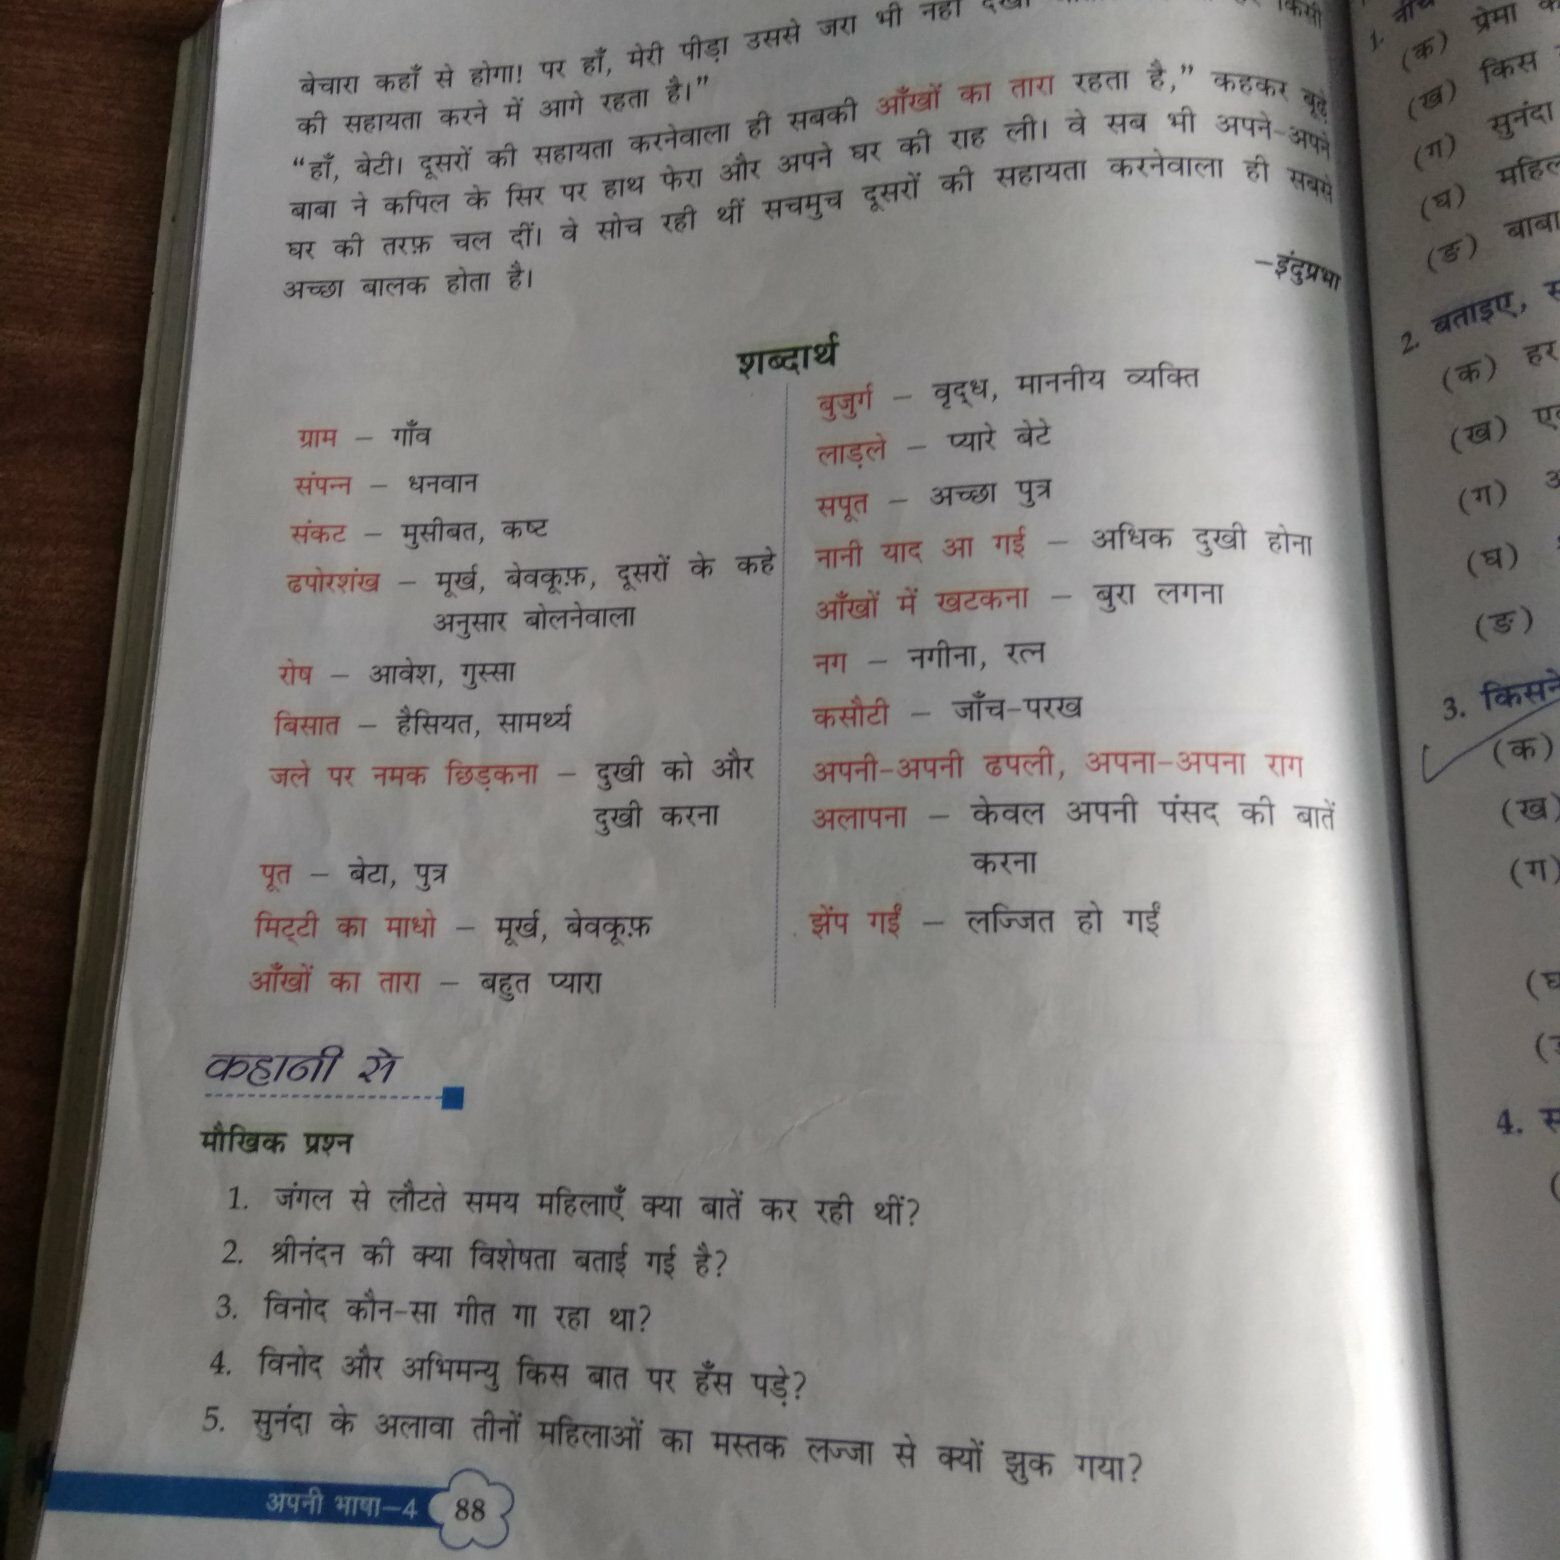 बेचारा कहाँ से होगा! पर हाँ, मेरी पीड़ा उससे जरा भी नहीं किसी
की सहायता करने में आगे रहता है।”
“हाँ, बेटी। दूसरों की सहायता करनेवाला ही सबकी आँखों का तारा रहता है,” कहकर बूढ़े
बाबा ने कपिल के सिर पर हाथ फेरा और अपने घर की राह ली। वे सब भी अपने-अपने
घर की तरफ़ चल दीं। वे सोच रही थीं सचमुच दूसरों की सहायता करनेवाला ही सबसे
अच्छा बालक होता है।
–इंदुप्रभा
शब्दार्थ
ग्राम – गाँव
संपन्न – धनवान
संकट – मुसीबत, कष्ट
ढपोरशंख – मूर्ख, बेवकूफ़, दूसरों के कहे
अनुसार बोलनेवाला
रोष – आवेश, गुस्सा
बिसात – हैसियत, सामर्थ्य
जले पर नमक छिड़कना – दुखी को और
दुखी करना
पूत – बेटा, पुत्र
मिट्टी का माधो – मूर्ख, बेवकूफ़
आँखों का तारा – बहुत प्यारा
बुजुर्ग – वृद्ध, माननीय व्यक्ति
लाड़ले – प्यारे बेटे
सपूत – अच्छा पुत्र
नानी याद आ गई – अधिक दुखी होना
आँखों में खटकना – बुरा लगना
नग – नगीना, रत्न
कसौटी – जाँच-परख
अपनी-अपनी ढपली, अपना-अपना राग
अलापना – केवल अपनी पंसद की बातें
करना
झेंप गईं – लज्जित हो गईं
कहानी से
मौखिक प्रश्न
1. जंगल से लौटते समय महिलाएँ क्या बातें कर रही थीं?
2. श्रीनंदन की क्या विशेषता बताई गई है?
3. विनोद कौन-सा गीत गा रहा था?
4. विनोद और अभिमन्यु किस बात पर हँस पड़े?
5. सुनंदा के अलावा तीनों महिलाओं का मस्तक लज्जा से क्यों झुक गया?
अपनी भाषा–4 88
1.
(क) प्रेमा
(ख) किस
(ग) सुनंदा
(घ)
(ङ) बाबा
2. बताइए,
(क) हर
(ख)
(ग)
(घ)
(ङ)
3. किसने
(क)
(ख)
(ग)
4.